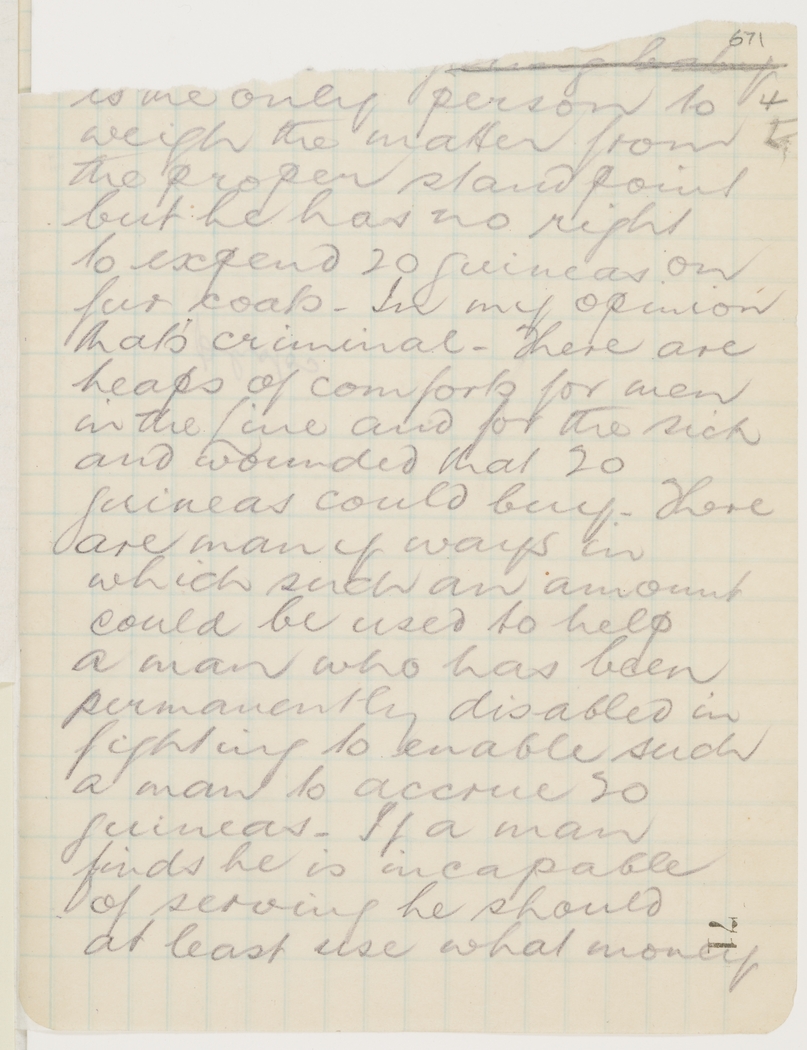 671
young baby
is the only person to
weigh the matter from
the proper standpoint
but he has no right
to expend 20 guineas on
fur coats - In my opinion
that's criminal - There are
heaps of comforts for men
in the line and for the sick
and wounded that 20
guineas could buy - There
are many ways in
which such an amount
could be used to help
a man who has been
permanently disabled in
fighting to enable such
a man to accrue 20
guineas - If a man
finds he is incapable
of serving he should
at least use what money
71